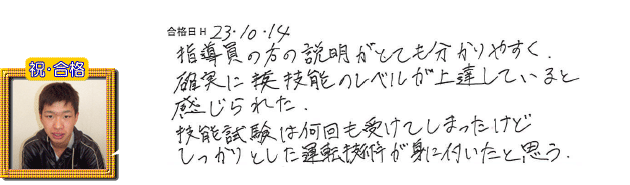 合格日 H 23・10・14
指導員の方の説明がとても分かりやすく.
確実に技能のレベルが上達していると
感じられた.
技能試験は何回も受けてしまったけど
しっかりとした運転技術が身に付いたと思う.
祝・合格